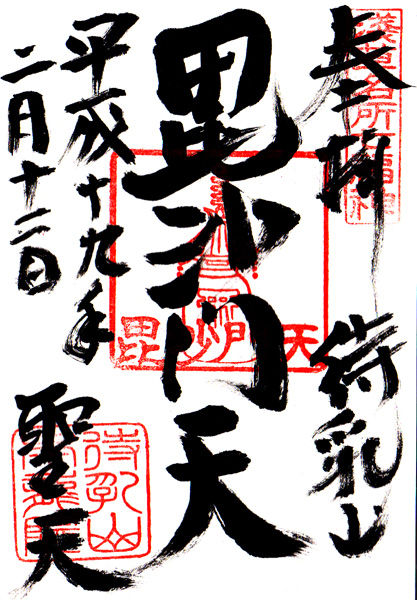 奉拝
待乳山
毘沙門天
平成十九年
二月十二日
聖天
浅草名所七福神
毘
天
待乳山